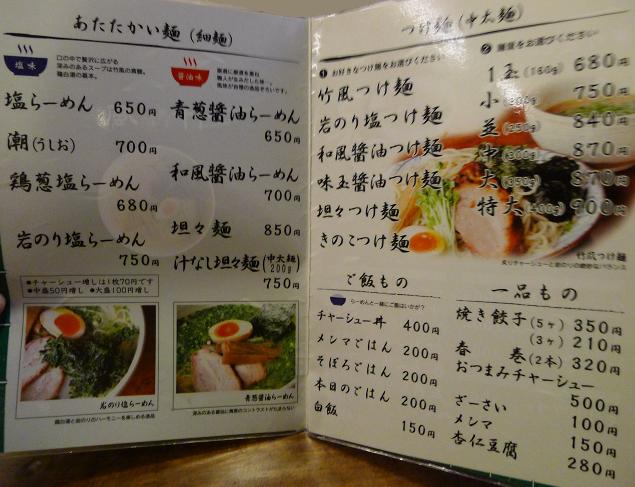 あたたかい麺(細麺)
塩味
口の中で贅沢に広がる
深みのあるスープは竹風の真髄。
鶏白湯の基本。
塩らーめん 650円
潮(うしお) 700円
鶏葱塩らーめん
680円
岩のり塩らーめん
750円
醤油味
青葱醤油らーめん
650円
和風醤油らーめん
700円
坦々麺 850円
汁なし坦々麺(中太麺200g)
750円
●チャーシュー増しは1枚70円です
●中盛50円増し ●大盛100円増し
岩のり塩らーめん
鶏白湯と岩のりのハーモニーを楽しめる逸品
青葱醤油らーめん
つけ麺(中太麺)
❶お好きなつけ麺をお選びください
竹風つけ麺
岩のり塩つけ麺
和風醤油つけ麺
味玉醤油つけ麺
坦々つけ麺
きのこつけ麺
❷麺量をお選びください
1玉(160g) 680円
小(200g) 750円
並(250g) 840円
中(300g) 870円
大(350g) 870円
特大(400g) 900円
竹風つけ麺
炙りチャーシューと岩のりの絶妙なバランス
ご飯もの
らーめんと一緒にご飯はいかが?
チャーシュー丼 400円
メンマごはん 200円
そぼろごはん 200円
本日のごはん 200円
白飯 150円
一品もの
焼き餃子(5ヶ) 350円
(3ヶ) 210円
春巻(2本) 320円
おつまみチャーシュー
500円
ざーさい 100円
メンマ 150円
杏仁豆腐 280円